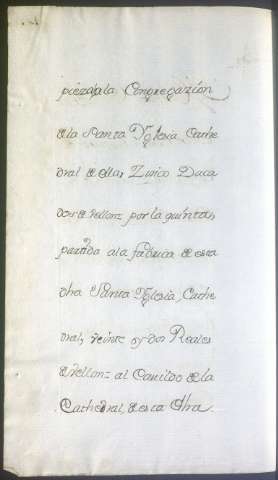 pieza, ala Congregazion
de la Santa Yglesia Cathe
dral de ella; Zinco Duca
dos de vellon; por la quinta,
partida a la fabrica de esta
dha Santa Yglesia Cathe
dral, veinte y dos Reales
de vellon; al Cavildo de la
Cathedral de esta dha